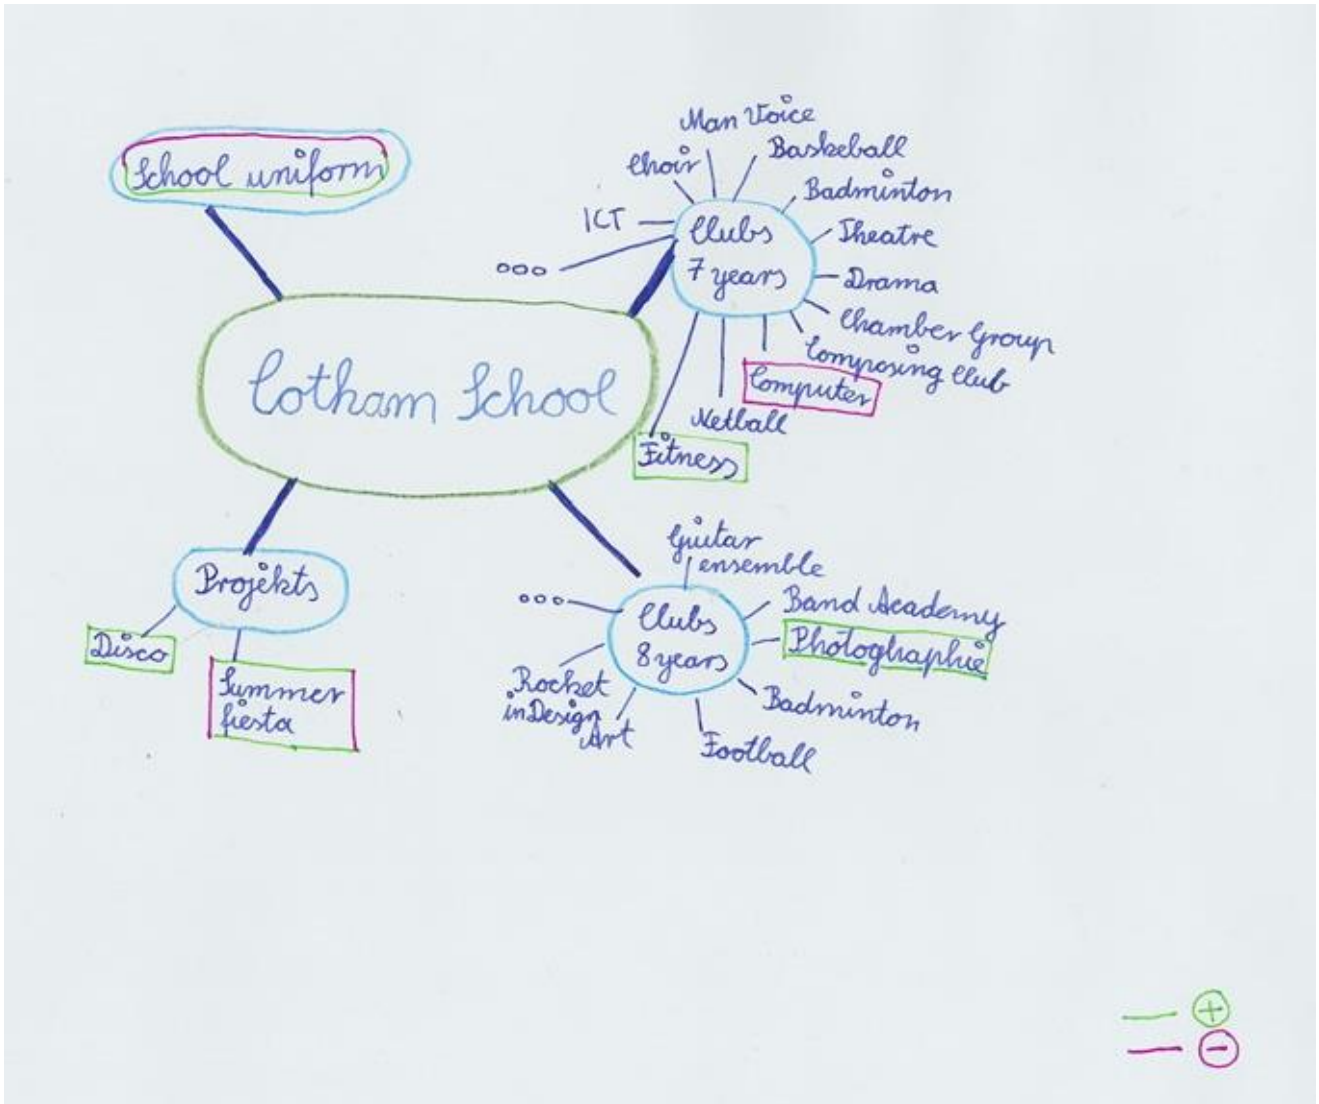 School uniform
Cotham School
Clubs
7 years
ICT
Choir
Man Voice
Baskeball
Badminton
Theatre
Drama
Chamber Group
Composing Club
Computer
Netball
Fitness
Projekts
Disco
Summer
fiesta
Clubs
8 years
Guitar
ensemble
Band Academy
Photographie
Badminton
Football
Art
Rocket
in Design
+
-